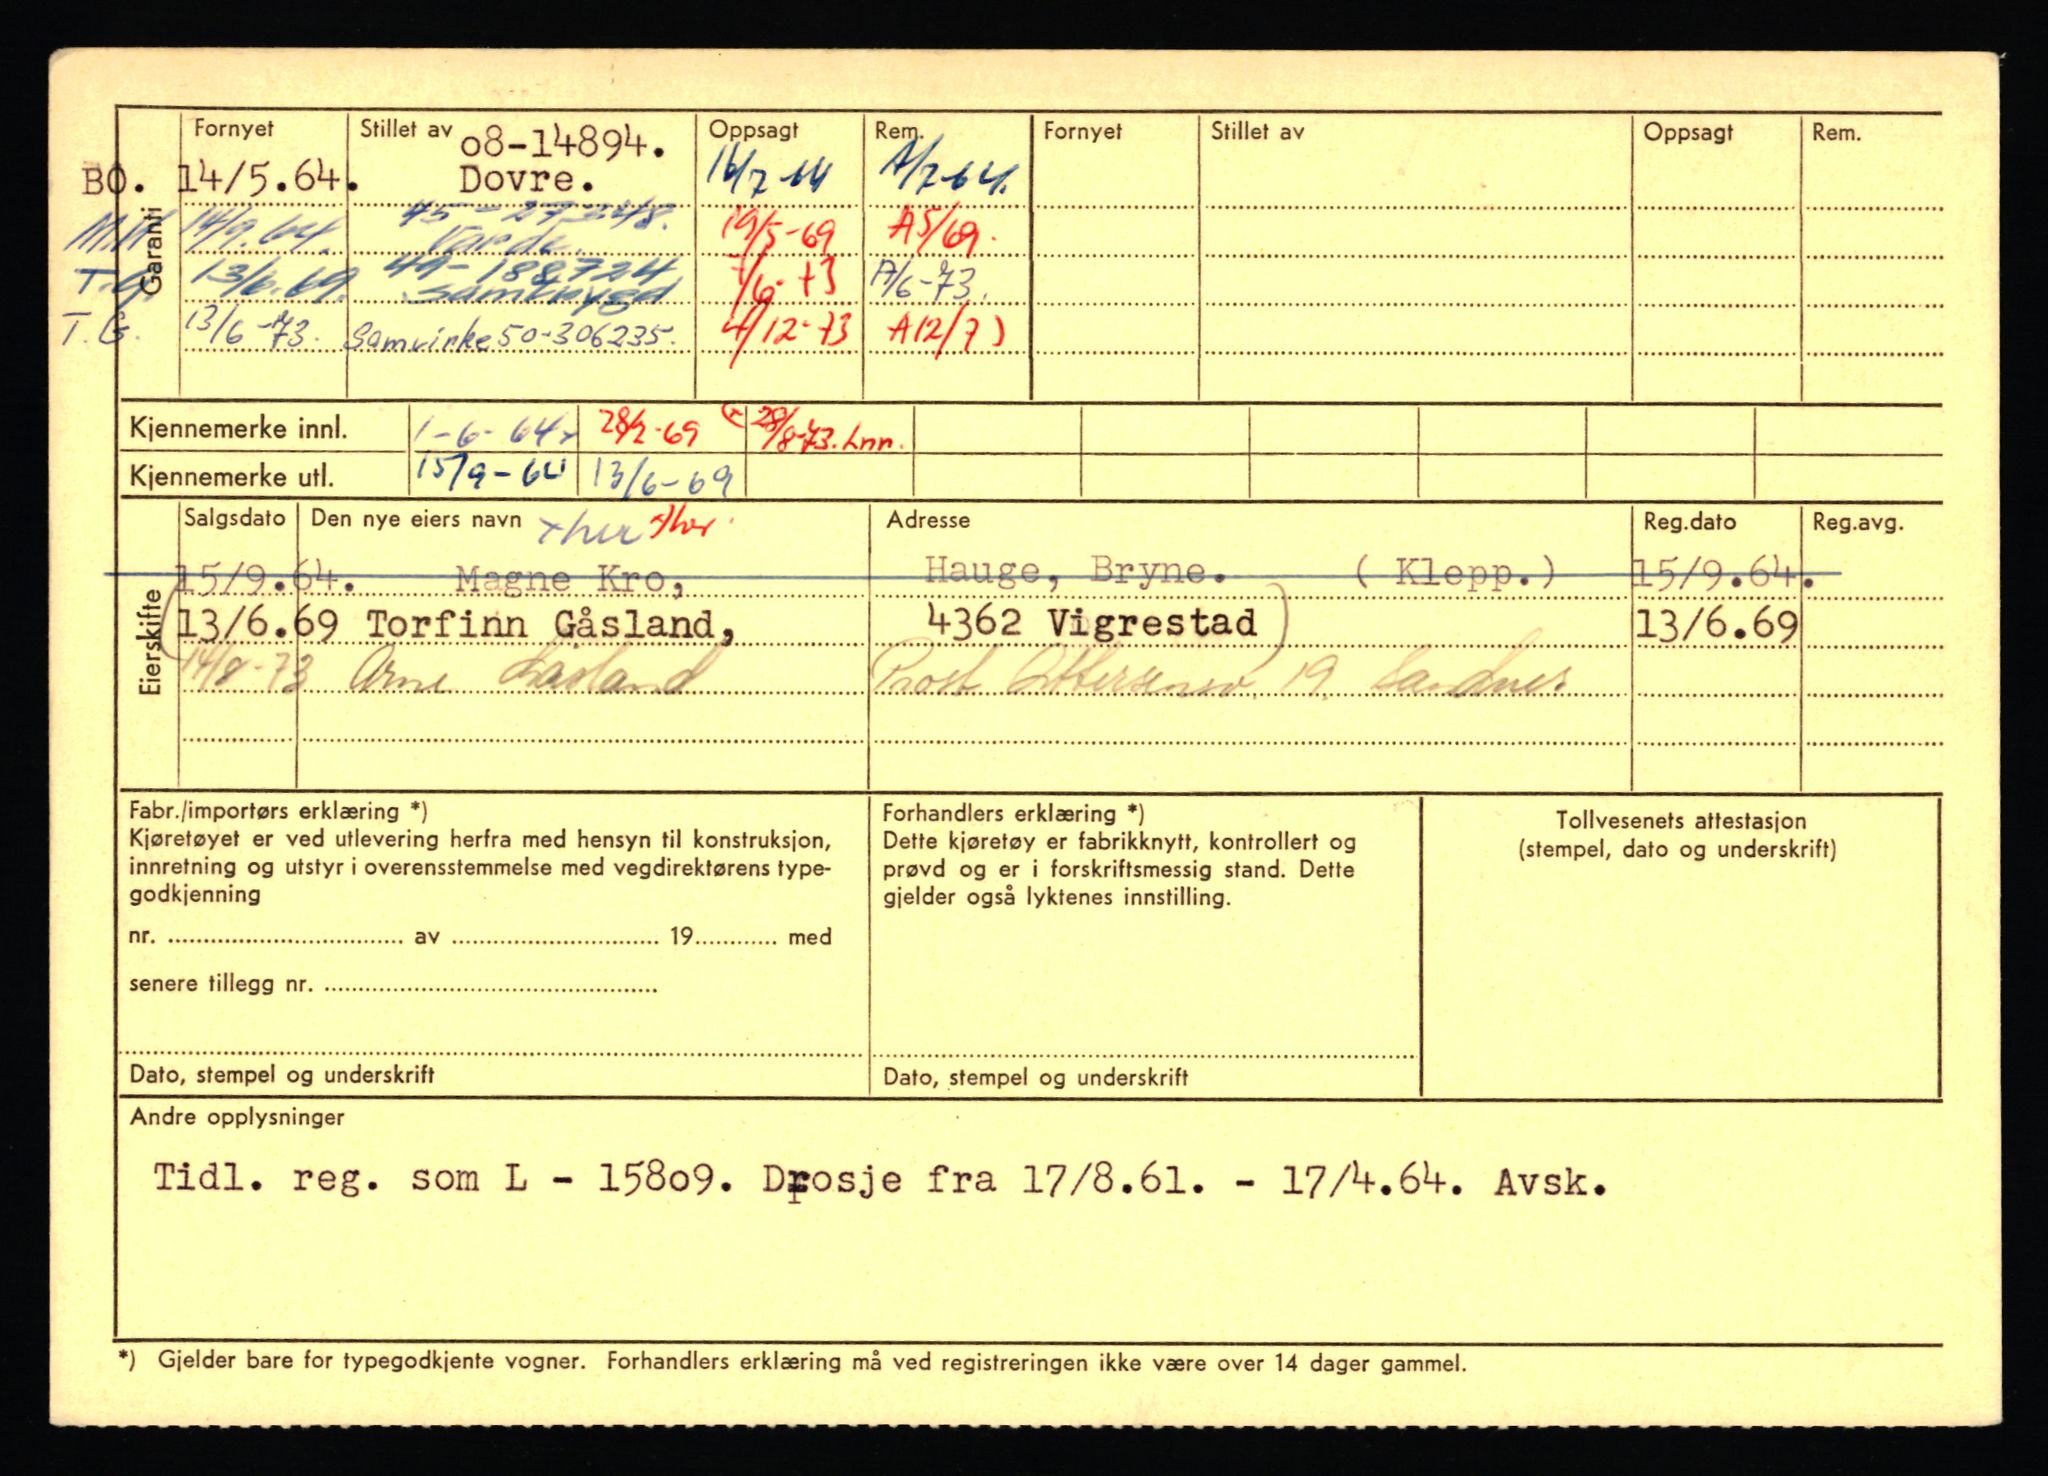 Fornyet Stillet av Oppsagt Rem. Fornyet Stillet av Oppsagt Rem.
o8-14894.
BO. 14/5.64. Dovre. 16/7-64 A/7-64.
Garanti
M.K 14/9.64. 45-27248. Varde. 19/5-69 A5/69.
T.G. 13/6.69. 49-188724 Samtrygd 7/6-73 A/6-73.
T.G. 13/6-73. Samvirke 50-306235. 4/12-73 A12/73
Kjennemerke innl. 1-6-64x 28/2-69 (x 28/8-73. Lnn.
Kjennemerke utl. 15/9-64 13/6-69
Salgsdato Den nye eiers navn xher xher Adresse Reg.dato Reg.avg.
Eierskifte
15/9.64. Magne Kro, Hauge, Bryne. ( Klepp.) 15/9.64.
(13/6.69 Torfinn Gåsland, 4362 Vigrestad) 13/6.69
14/8-73 Arne 19, Sandnes
Fabr./importørs erklæring *)
Kjøretøyet er ved utlevering herfra med hensyn til konstruksjon,
innretning og utstyr i overensstemmelse med vegdirektørens type-
godkjenning
nr. .......... av .......... 19.......... med
senere tillegg nr. ..........
Dato, stempel og underskrift
Forhandlers erklæring *)
Dette kjøretøy er fabrikknytt, kontrollert og
prøvd og er i forskriftsmessig stand. Dette
gjelder også lyktenes innstilling.
Dato, stempel og underskrift
Tollvesenets attestasjon
(stempel, dato og underskrift)
Andre opplysninger
Tidl. reg. som L - 158o9. Drosje fra 17/8.61. - 17/4.64. Avsk.
*) Gjelder bare for typegodkjente vogner. Forhandlers erklæring må ved registreringen ikke være over 14 dager gammel.